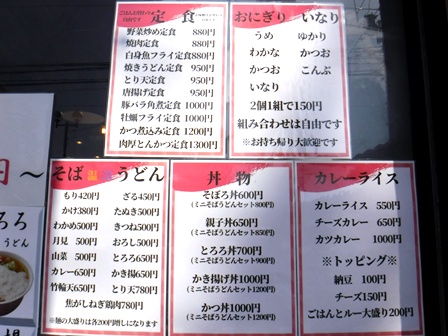 定食
野菜炒め定食 880円
焼肉定食 880円
白身魚フライ定食 880円
焼きうどん定食 950円
とり天定食 950円
唐揚げ定食 950円
豚バラ角煮定食 1000円
牡蠣フライ定食 1000円
かつ煮込み定食 1200円
肉厚とんかつ定食 1300円
おにぎり いなり
うめ ゆかり
わかな かつお
かつお こんぶ
いなり
2個1組で150円
組み合わせは自由です
※お持ち帰り大歓迎です
そば 温 うどん
もり420円 ざる450円
かけ380円 たぬき500円
わかめ500円 きつね500円
月見 500円 おろし500円
山菜 550円 とろろ650円
カレー650円 かき揚650円
竹輪天650円 とり天780円
焦がしねぎ鶏肉780円
※麺の大盛りは各200円増しになります
丼物
そぼろ丼600円
(ミニそばうどんセット800円)
親子丼650円
(ミニそばうどんセット850円)
とろろ丼700円
(ミニそばうどんセット900円)
かき揚げ丼1000円
(ミニそばうどんセット1200円)
かつ丼1000円
(ミニそばうどんセット1200円)
カレーライス
カレーライス 550円
チーズカレー 650円
カツカレー 1000円
※トッピング※
納豆 100円
チーズ150円
ごはんとルー大盛り 200円
円～
ろろ
うどん